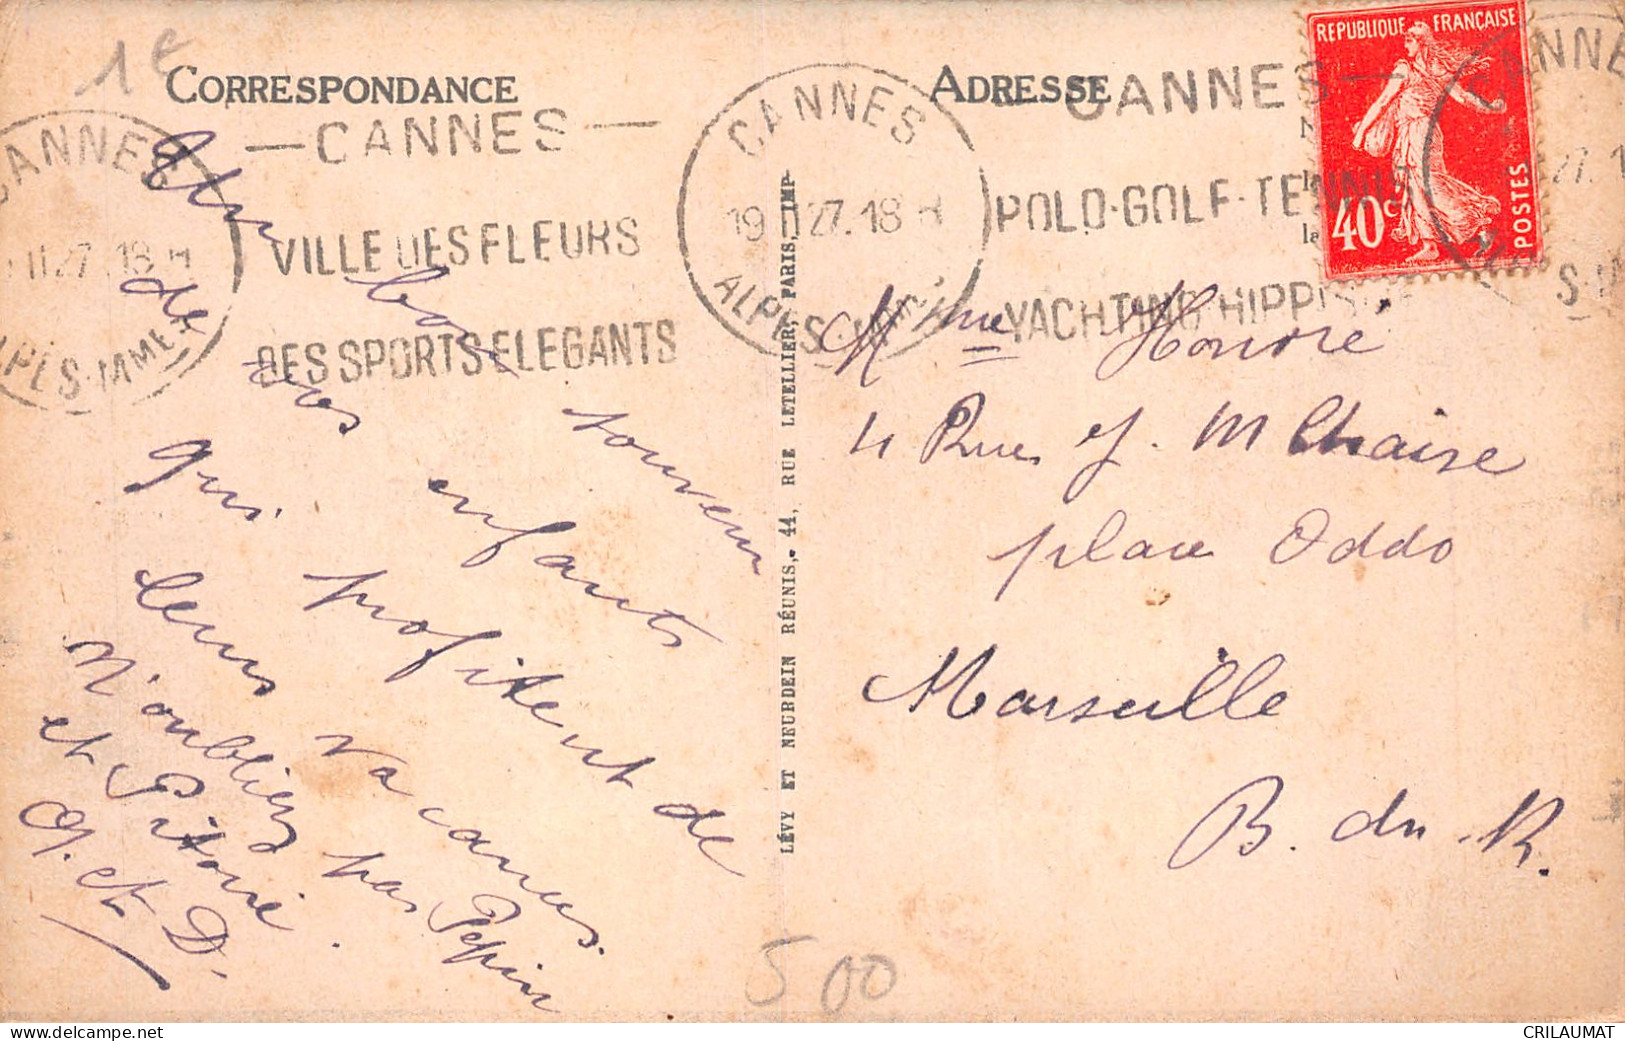 1e
CORRESPONDANCE
ADRESSE
REPUBLIQUE FRANÇAISE
40c
POSTES
CANNES
19 II 27. 18 H
ALPES-MMES
— CANNES —
VILLE DES FLEURS
DES SPORTS ELEGANTS
CANNES
19 II 27. 18 H
ALPES-MMES
— CANNES —
POLO-GOLF-TENNIS
YACHTING HIPPIS
CANNES
27. 1
Un bon souvenir
de vos enfants
qui profitent de
leurs vacances.
N'oubliez pas Pepin
et Pitoué.
J. et D.
LÉVY ET NEURDEIN RÉUNIS, 44, RUE LETELLIER, PARIS, IMP
Mme Honoré
4 Rue J. M Chaise
place Oddo
Marseille
B. du R.
500
www.delcampe.net
CRILAUMAT